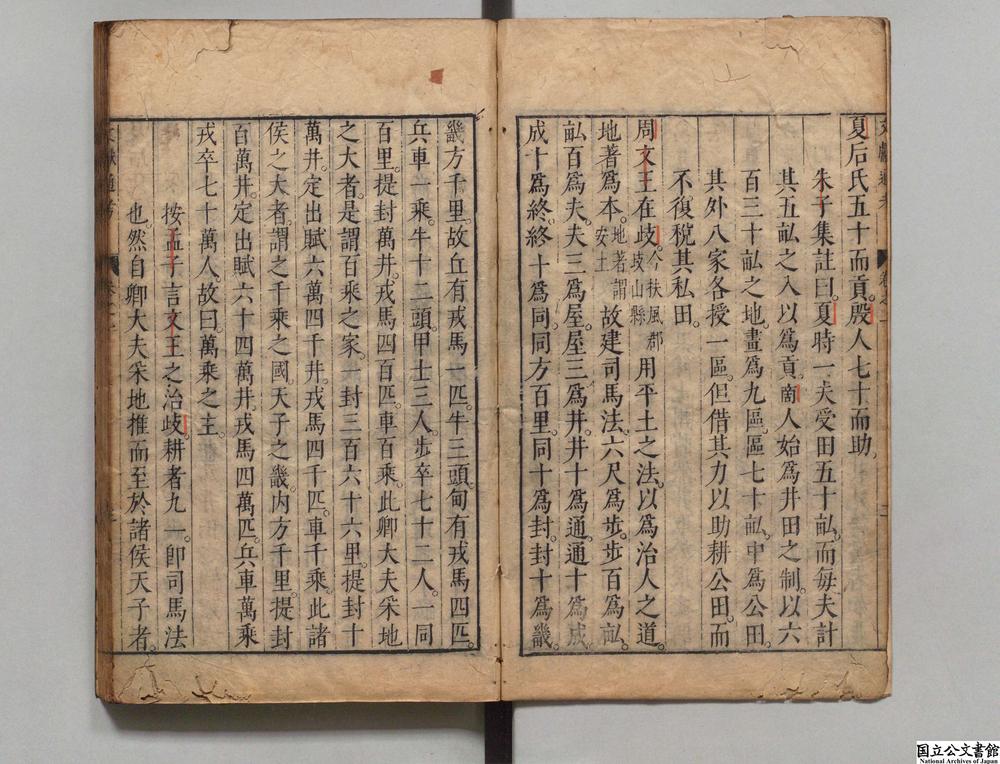 夏后氏五十而貢殷人七十而助
朱子集註曰夏時一夫受田五十畝而每夫計
其五畝之入以爲貢商人始爲井田之制以六
百三十畝之地畫爲九區區七十畝中爲公田
其外八家各授一區但借其力以助耕公田而
不復稅其私田
周文王在歧今扶風郡歧山縣用平土之法以爲治人之道
地著爲本地著謂安土故建司馬法六尺爲步步百爲畝
畝百爲夫夫三爲屋屋三爲井井十爲通通十爲成
成十爲終終十爲同同方百里同十爲封封十爲畿
畿方千里故丘有戎馬一匹牛三頭甸有戎馬四匹
兵車一乘牛十二頭甲士三人步卒七十二人一同
百里提封萬井戎馬四百匹車百乘此卿大夫采地
之大者是謂百乘之家一封三百六十六里提封十
萬井定出賦六萬四千井戎馬四千匹車千乘此諸
侯之大者謂之千乘之國天子之畿内方千里提封
百萬井定出賦六十四萬井戎馬四萬匹兵車萬乘
戎卒七十萬人故曰萬乘之主
按孟子言文王之治歧耕者九一卽司馬法
也然自卿大夫采地推而至於諸侯天子者
国立公文書館
National Archives of Japan